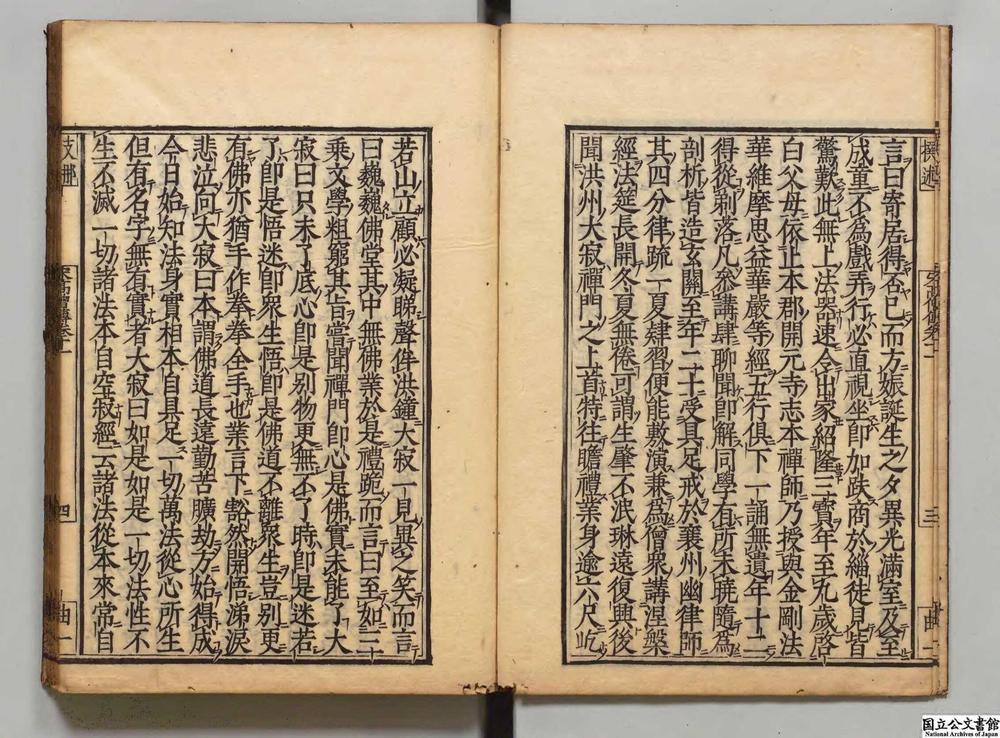 言曰寄居得否已而方娠誕生之夕異光滿室及至
成童不爲戲弄行必直視坐即加趺商於緇徒見皆
驚歎此無上法器速令出家紹隆三寶年至九歲啓
白父母依止本郡開元寺志本禪師乃授與金剛法
華維摩思益華嚴等經五行俱下一誦無遺年十二
得從剃落凡參講肆聊聞即解同學有所未曉隨爲
剖析皆造玄關至年二十受具足戒於襄州幽律師
其四分律疏一夏肄習便能敷演兼爲僧衆講涅槃
經法筵長開冬夏無倦可謂生肇不泯琳遠復興後
聞洪州大寂禪門之上首特往瞻禮業身逾六尺屹
若山立顧必凝睇聲侔洪鐘大寂一見異之笑而言
曰巍巍佛堂其中無佛業於是禮跪而言曰至如三
乘文學粗窮其旨嘗聞禪門即心是佛實未能了大
寂曰只未了底心即是別物更無不了時即是迷若
了即是悟迷即衆生悟即是佛道不離衆生豈別更
有佛亦猶手作拳拳全手也業言下豁然開悟涕淚
悲泣向大寂曰本謂佛道長遠勤苦曠劫方始得成
今日始知法身實相本自具足一切萬法從心所生
但有名字無有實者大寂曰如是如是一切法性不
生不滅一切諸法本自空寂經云諸法從本來常自
三
四
国立公文書館
National Archives of Japan